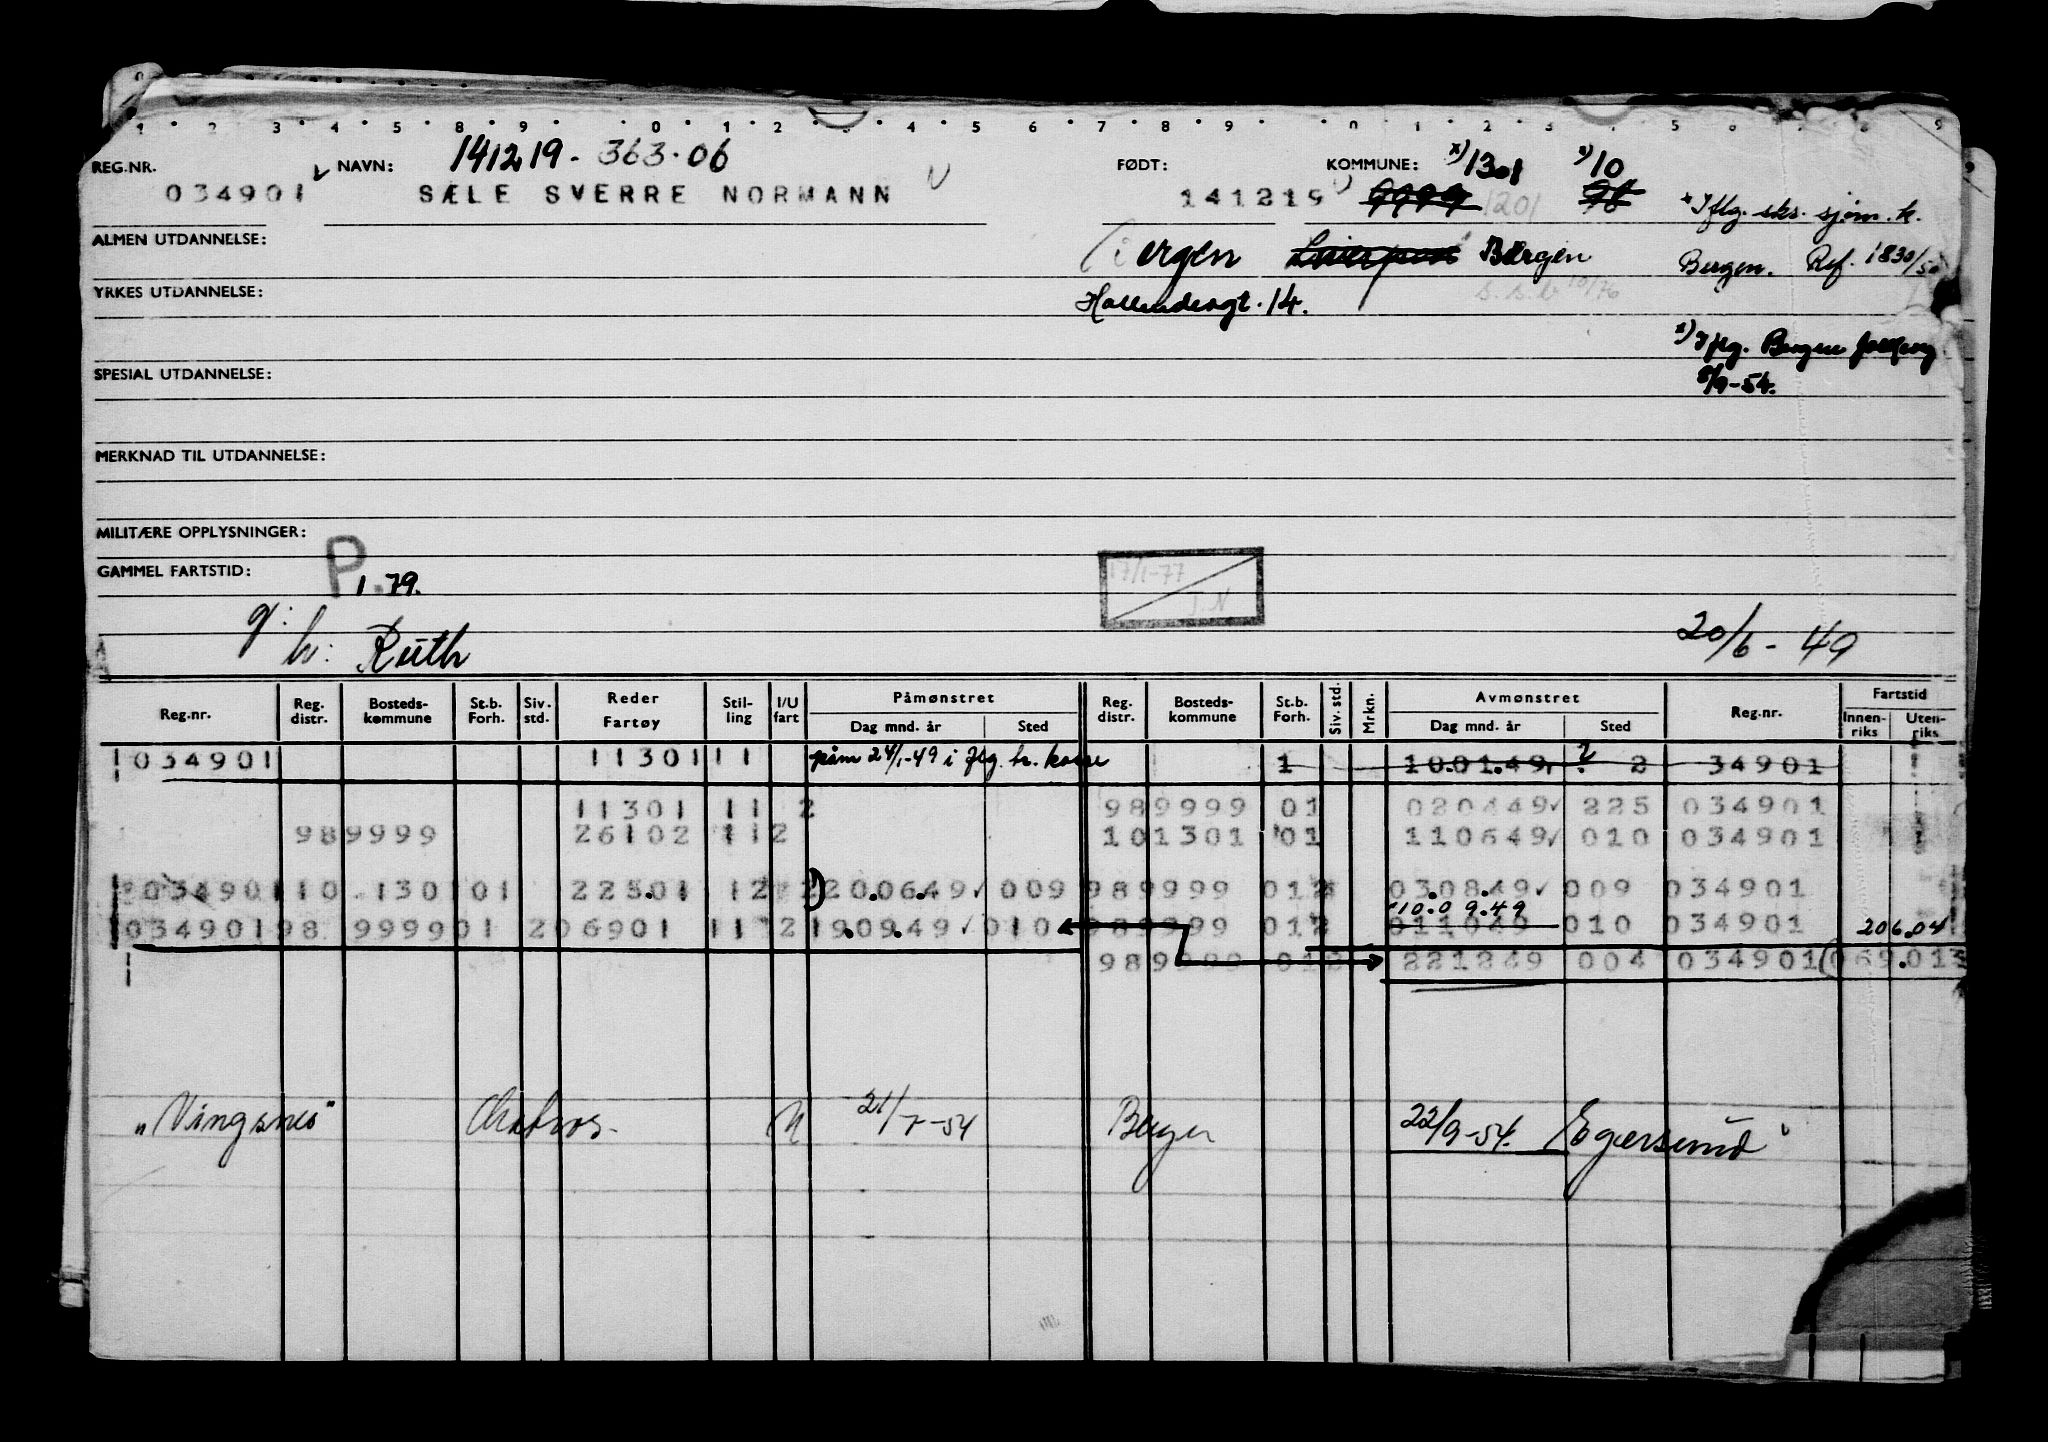 141219 - 363.06
REG.NR. NAVN: FØDT: KOMMUNE: x) 1301 x) 10
034901 SÆLE SVERRE NORMANN 141219 9999 1201 98 * Iflg. sks. sjøm. k.
ALMEN UTDANNELSE:
Bergen Liverpool Bergen Bergen. Ref. 1830/50
YRKES UTDANNELSE:
Hollendergt. 14. s.s.b 10/76
x) Iflg. Bergen folkereg
SPESIAL UTDANNELSE: 8/9-54.
MERKNAD TIL UTDANNELSE:
MILITÆRE OPPLYSNINGER:
GAMMEL FARTSTID: P 1.79. 17/1-77 J.N
g:
h: Ruth 20/6 - 49
Reg.nr. Reg. distr. Bosteds-kommune St.b. Forh. Siv. std. Reder Fartøy Stil-ling I/U fart Påmønstret Dag mnd. år Sted Reg. distr. Bosteds-kommune St.b. Forh. Siv. std. Mrkn. Avmønstret Dag mnd. år Sted Reg.nr. Fartstid Innen-riks Uten-riks
034901 11301 11 påm 24/1-49 i flg. h. 1 10.01.49 2 2 34901
11301 11 2 989999 01 020449 225 034901
989999 26102 11 2 101301 01 110649 010 034901
034901 10 1301 01 22501 12 2 20.06.49 009 989999 012 03.08.49 009 034901
10.09.49
034901 98 9999 01 2 06901 11 2 19.09.49 010 989999 012 011049 010 034901 206.04
989999 012 221249 004 034901 069.013
"Vingsnes" U 21/7-54 Bergen 22/9-54. Egersund